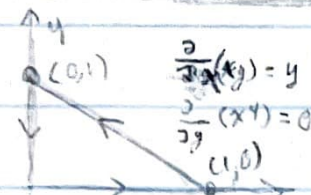 y
(0,1)
∂/∂x (xy) = y
∂/∂y (x⁴) = 0
(1,0)